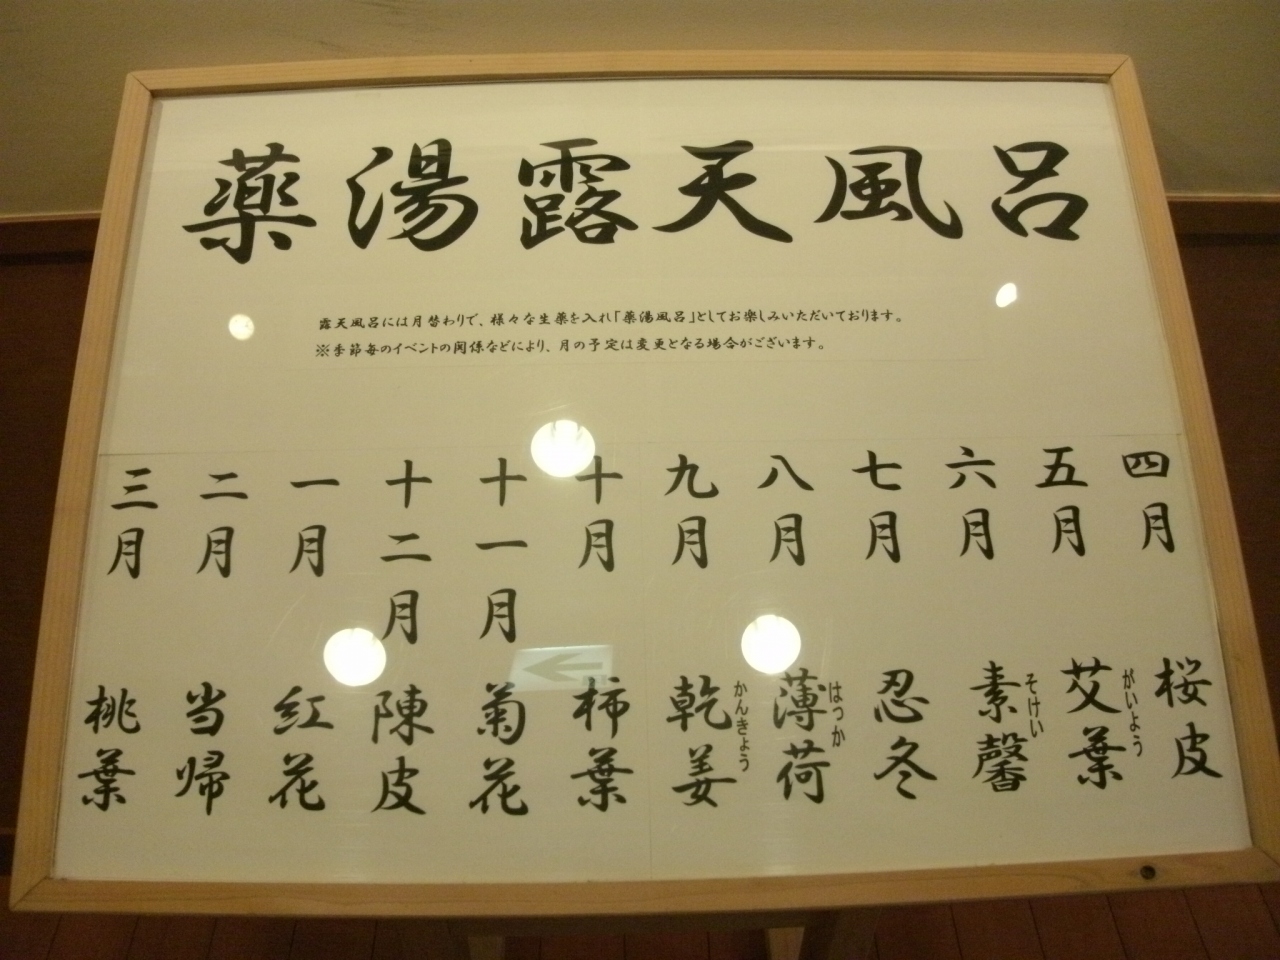 薬湯露天風呂
露天風呂には月替わりで、様々な生薬を入れ「薬湯風呂」としてお楽しみいただいております。
※季節毎のイベントの関係などにより、月の予定は変更となる場合がございます。
四月 桜皮
五月 艾葉 がいよう
六月 素馨 そけい
七月 忍冬
八月 薄荷 はっか
九月 乾姜 かんきょう
十月 柿葉
十一月 菊花
十二月 陳皮
一月 紅花
二月 当帰
三月 桃葉